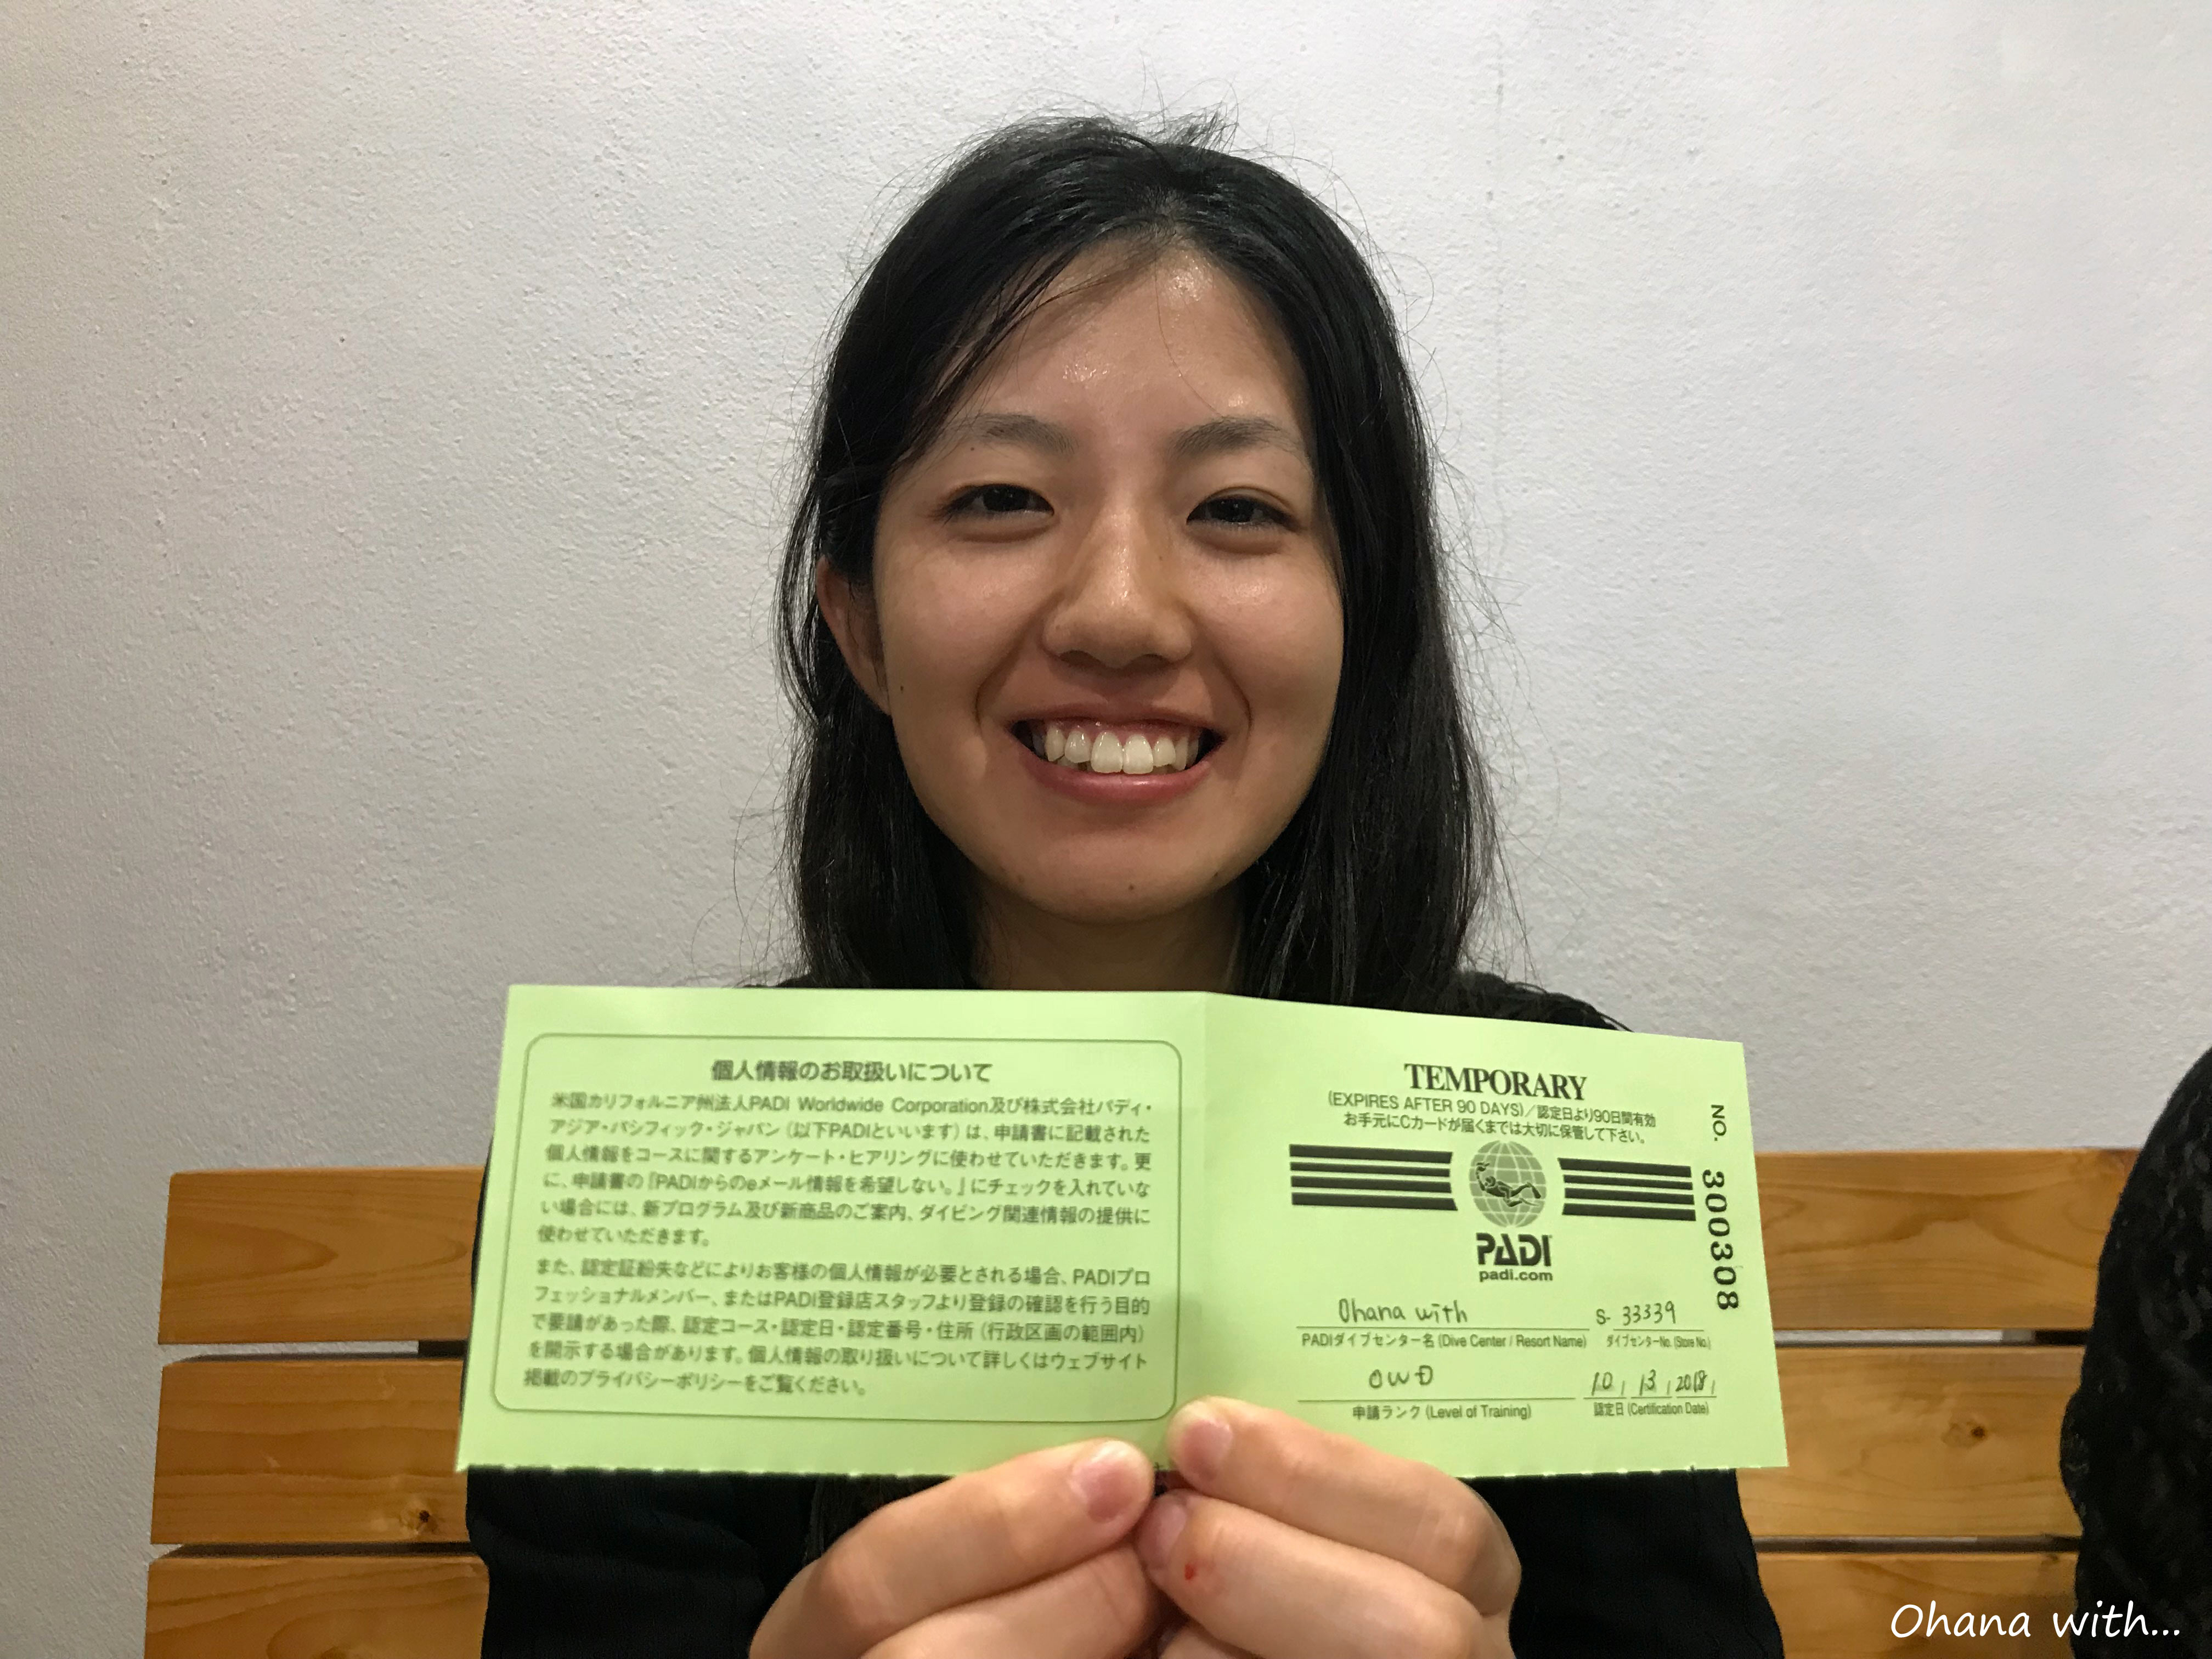 個人情報のお取扱いについて
米国カリフォルニア州法人PADI Worldwide Corporation及び株式会社パディ・
アジア・パシフィック・ジャパン（以下PADIといいます）は、申請書に記載された
個人情報をコースに関するアンケート・ヒアリングに使わせていただきます。更
に、申請書の『PADIからのeメール情報を希望しない。』にチェックを入れていな
い場合には、新プログラム及び新商品のご案内、ダイビング関連情報の提供に
使わせていただきます。
また、認定証紛失などによりお客様の個人情報が必要とされる場合、PADIプロ
フェッショナルメンバー、またはPADI登録店スタッフより登録の確認を行う目的
で要請があった際、認定コース・認定日・認定番号・住所（行政区画の範囲内）
を開示する場合があります。個人情報の取り扱いについて詳しくはウェブサイト
掲載のプライバシーポリシーをご覧ください。
TEMPORARY
(EXPIRES AFTER 90 DAYS)／認定日より90日間有効
お手元にCカードが届くまでは大切に保管して下さい。
NO. 300308
PADI
padi.com
Ohana with S- 33339
PADIダイブセンター名 (Dive Center / Resort Name) ダイブセンターNo. (Store No.)
OWD 10 / 13 / 2018 /
申請ランク (Level of Training) 認定日 (Certification Date)
Ohana with...